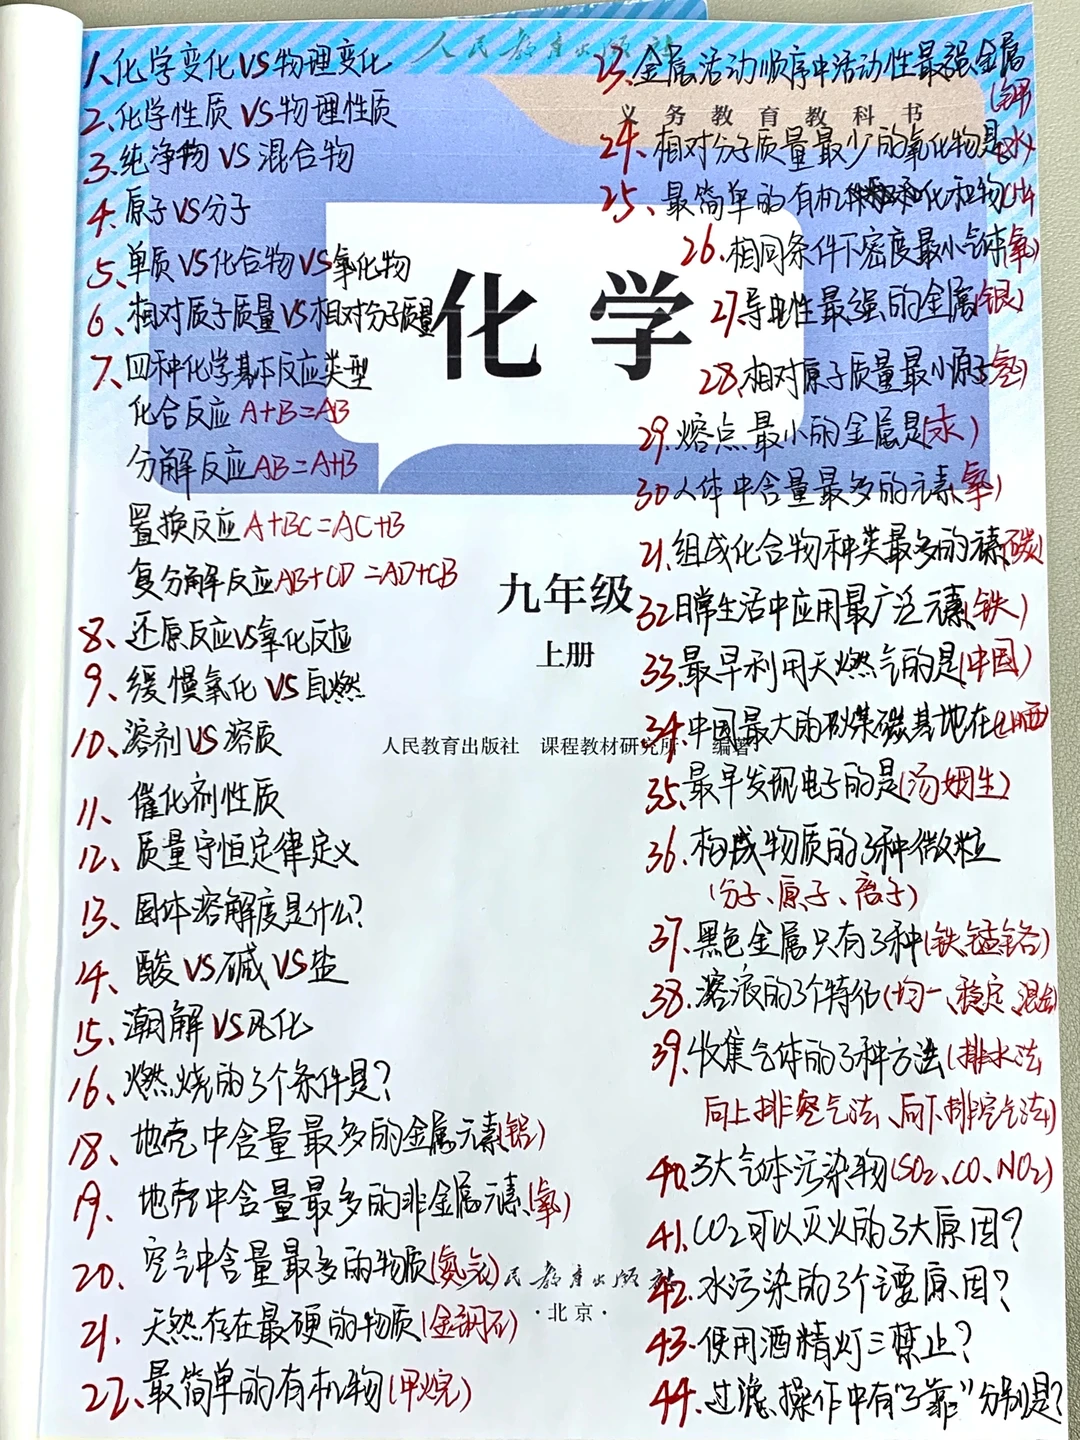 人民教育出版社
义务教育教科书
化学
九年级
上册
人民教育出版社 课程教材研究所 编著
民教育出版社
·北京·
1、化学变化VS物理变化
2、化学性质VS物理性质
3、纯净物VS混合物
4、原子VS分子
5、单质VS化合物VS氧化物
6、相对质子质量VS相对分子质量
7、四种化学基本反应类型
化合反应A+B=AB
分解反应AB=A+B
置换反应A+BC=AC+B
复分解反应AB+CD=AD+CB
8、还原反应VS氧化反应
9、缓慢氧化VS自燃
10、溶剂VS溶质
11、催化剂性质
12、质量守恒定律定义
13、固体溶解度是什么?
14、酸VS碱VS盐
15、潮解VS风化
16、燃烧的3个条件是?
18、地壳中含量最多的金属元素(铝)
19、地壳中含量最多的非金属元素(氧)
20、空气中含量最多的物质(氮气)
21、天然存在最硬的物质(金刚石)
22、最简单的有机物(甲烷)
23、金属活动顺序中活动性最强金属
(钾)
24、相对分子质量最少的氧化物是(水)
25、最简单的有机化和物CH4
26、相同条件下密度最小气体(氢)
27、导电性最强的金属(银)
28、相对原子质量最小原子(氢)
29、熔点最小的金属是(汞)
30人体中含量最多的元素(氧)
21、组成化合物种类最多的元素(碳)
32日常生活中应用最广泛元素(铁)
33、最早利用天燃气的是(中国)
34、中国最大的煤碳基地在(山西)
35、最早发现电子的是(汤姆生)
36、构成物质的3种微粒
(分子、原子、离子)
37、黑色金属只有3种(铁锰铬)
38、溶液的3个特征(均一、稳定、混合)
39、收集气体的3种方法(排水法
向上排空气法、向下排空气法)
40、3大气体污染物(SO2、CO、NO2)
41、CO2可以灭火的3大原因?
42、水污染的3个主要原因?
43、使用酒精灯三禁止?
44、过滤操作中有"3靠"分别是?